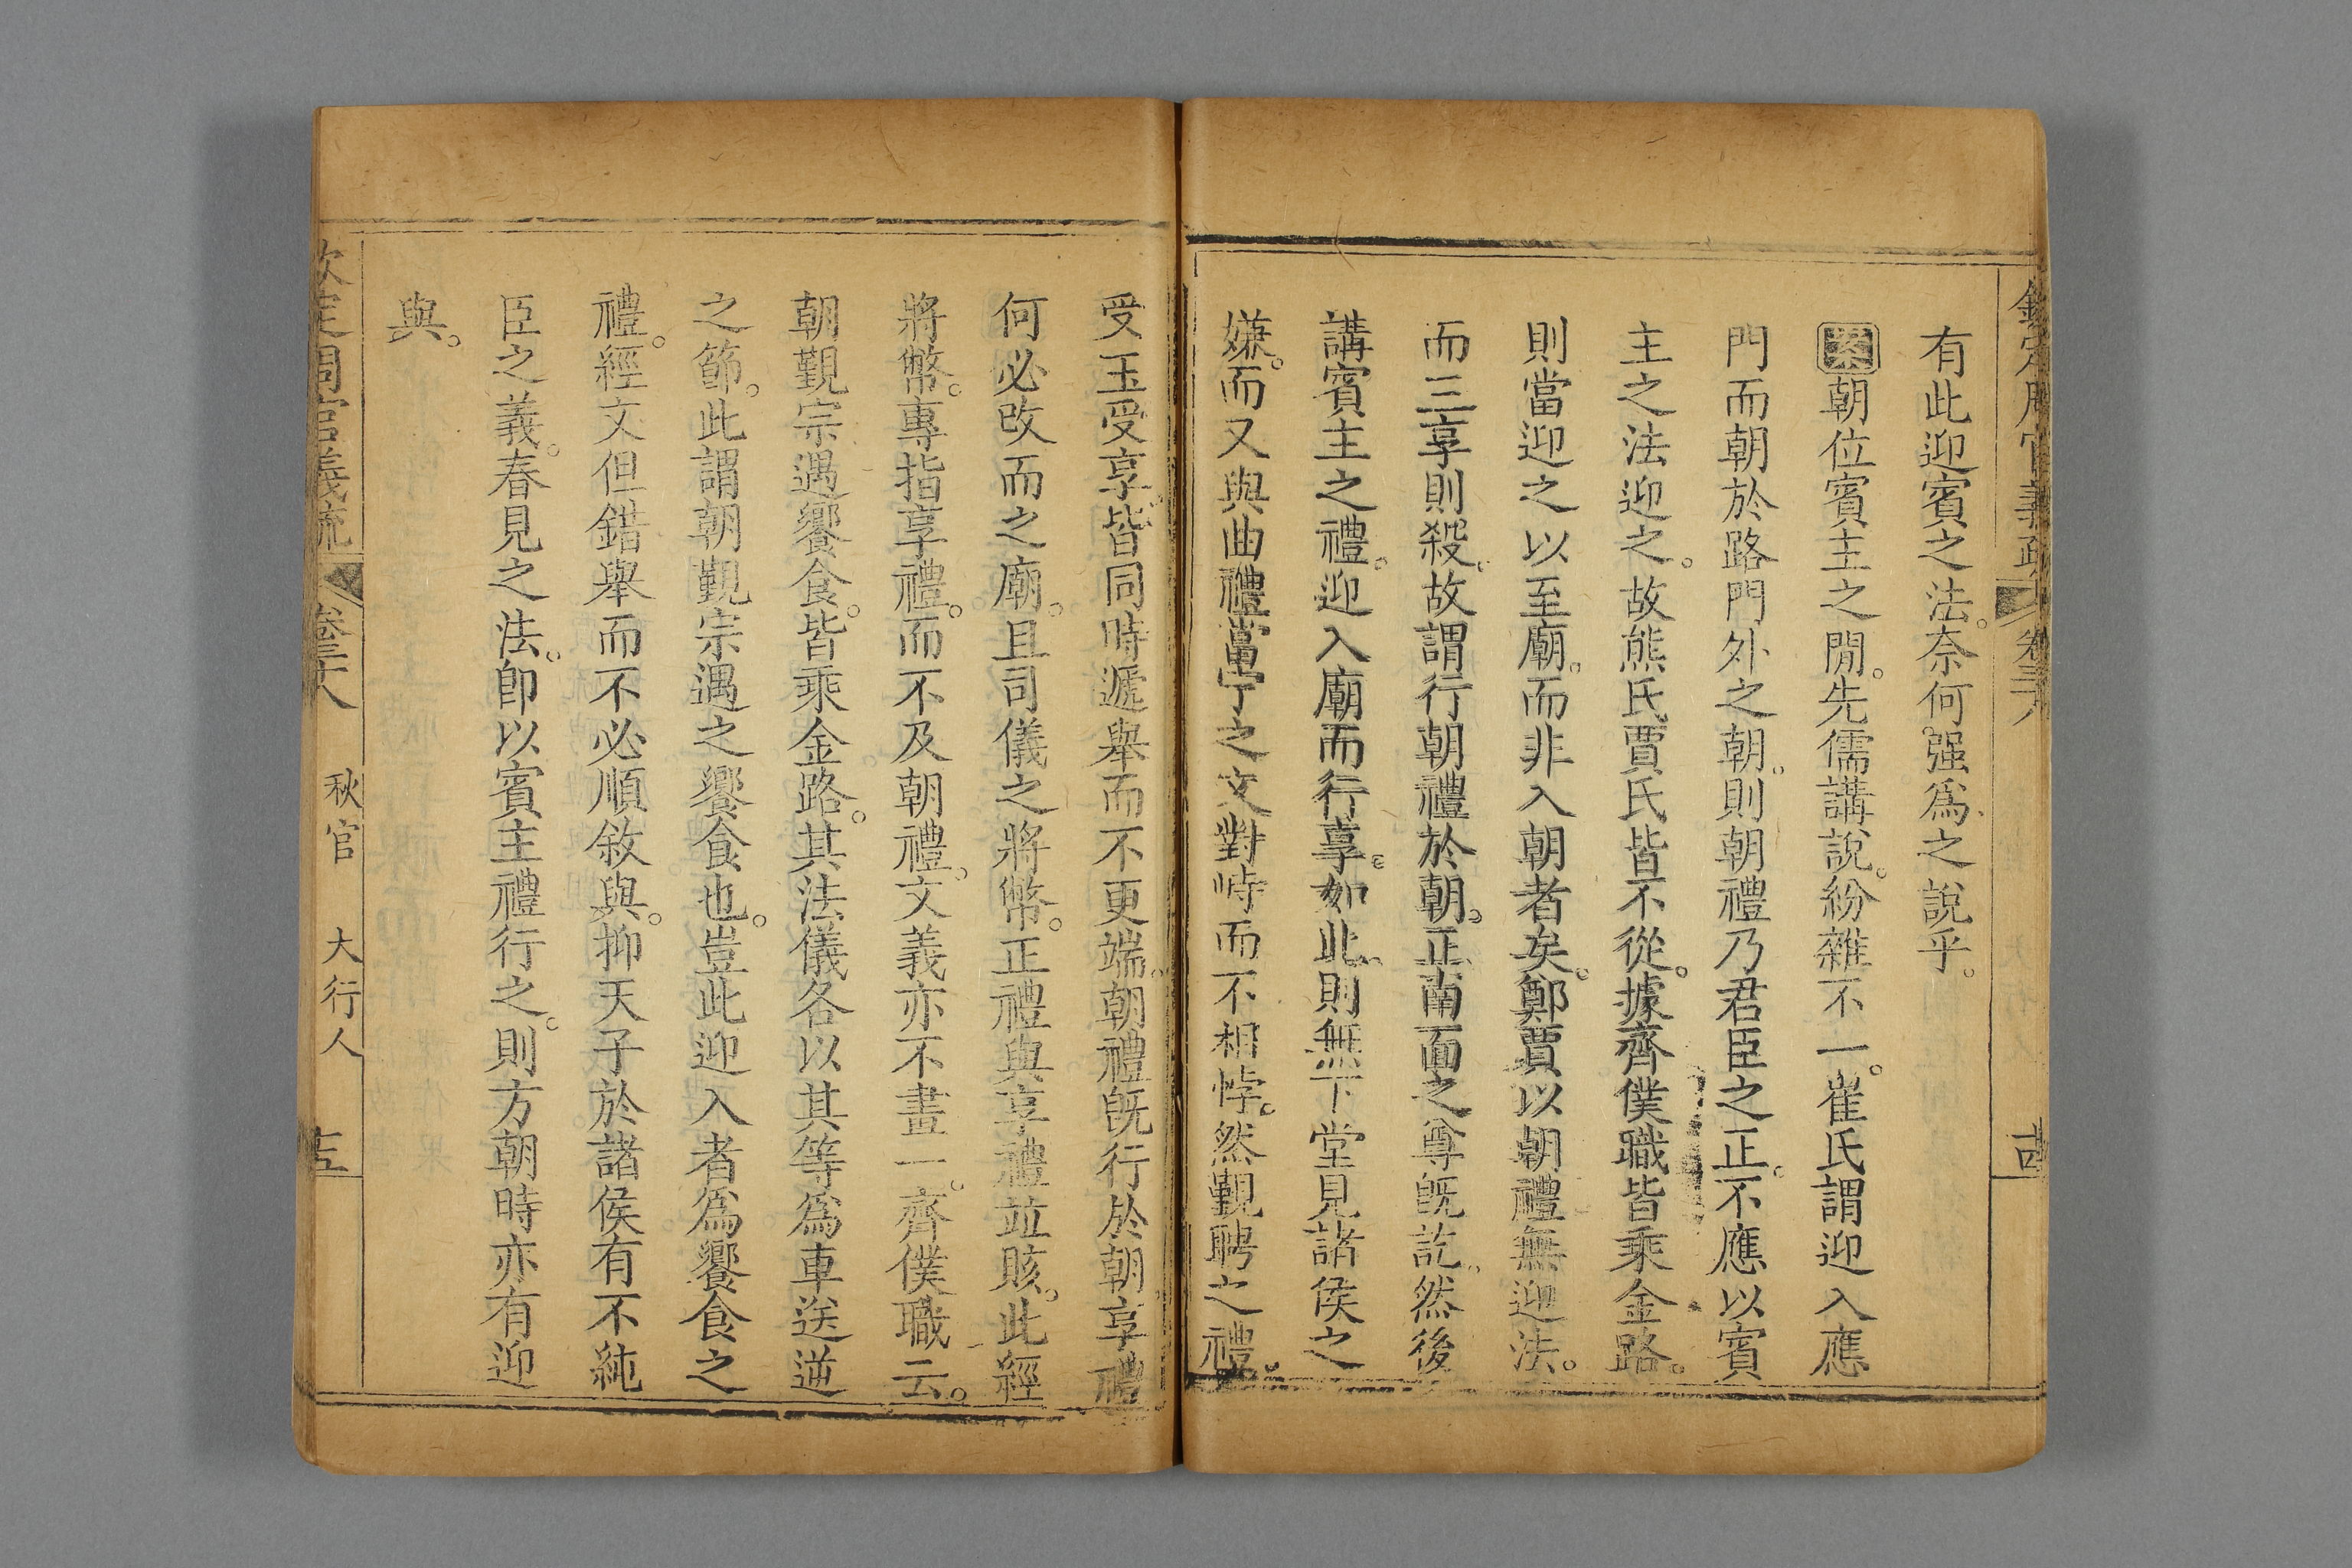 欽定周官義疏 卷三十八 十四
有此迎賓之法。奈何强爲之說乎。
案朝位賓主之閒。先儒講說。紛雜不一。崔氏謂迎入應
門而朝於路門外之朝。則朝禮乃君臣之正。不應以賓
主之法迎之。故熊氏賈氏皆不從。據齊僕職皆乘金路。
則當迎之以至廟。而非入朝者矣。鄭賈以朝禮無迎法。
而三享則殺。故謂行朝禮於朝。正南面之尊旣訖。然後
講賓主之禮。迎入廟而行享。如此。則無下堂見諸侯之
嫌。而又與曲禮當宁之文對時而不相悖。然覲聘之禮。
受玉受享。皆同時遞舉而不更端。朝禮旣行於朝。享禮
何必改而之廟。且司儀之將幣。正禮與享禮並賅。此經
將幣。專指享禮。而不及朝禮。文義亦不畫一。齊僕職云。
朝覲宗遇饗食。皆乘金路。其法儀各以其等爲車送逆
之節。此謂朝覲宗遇之饗食也。豈此迎入者爲饗食之
禮。經文但錯舉而不必順敘與。抑天子於諸侯有不純
臣之義。春見之法。卽以賓主禮行之。則方朝時亦有迎
與。
欽定周官義疏 卷三十八 秋官 大行人 十五